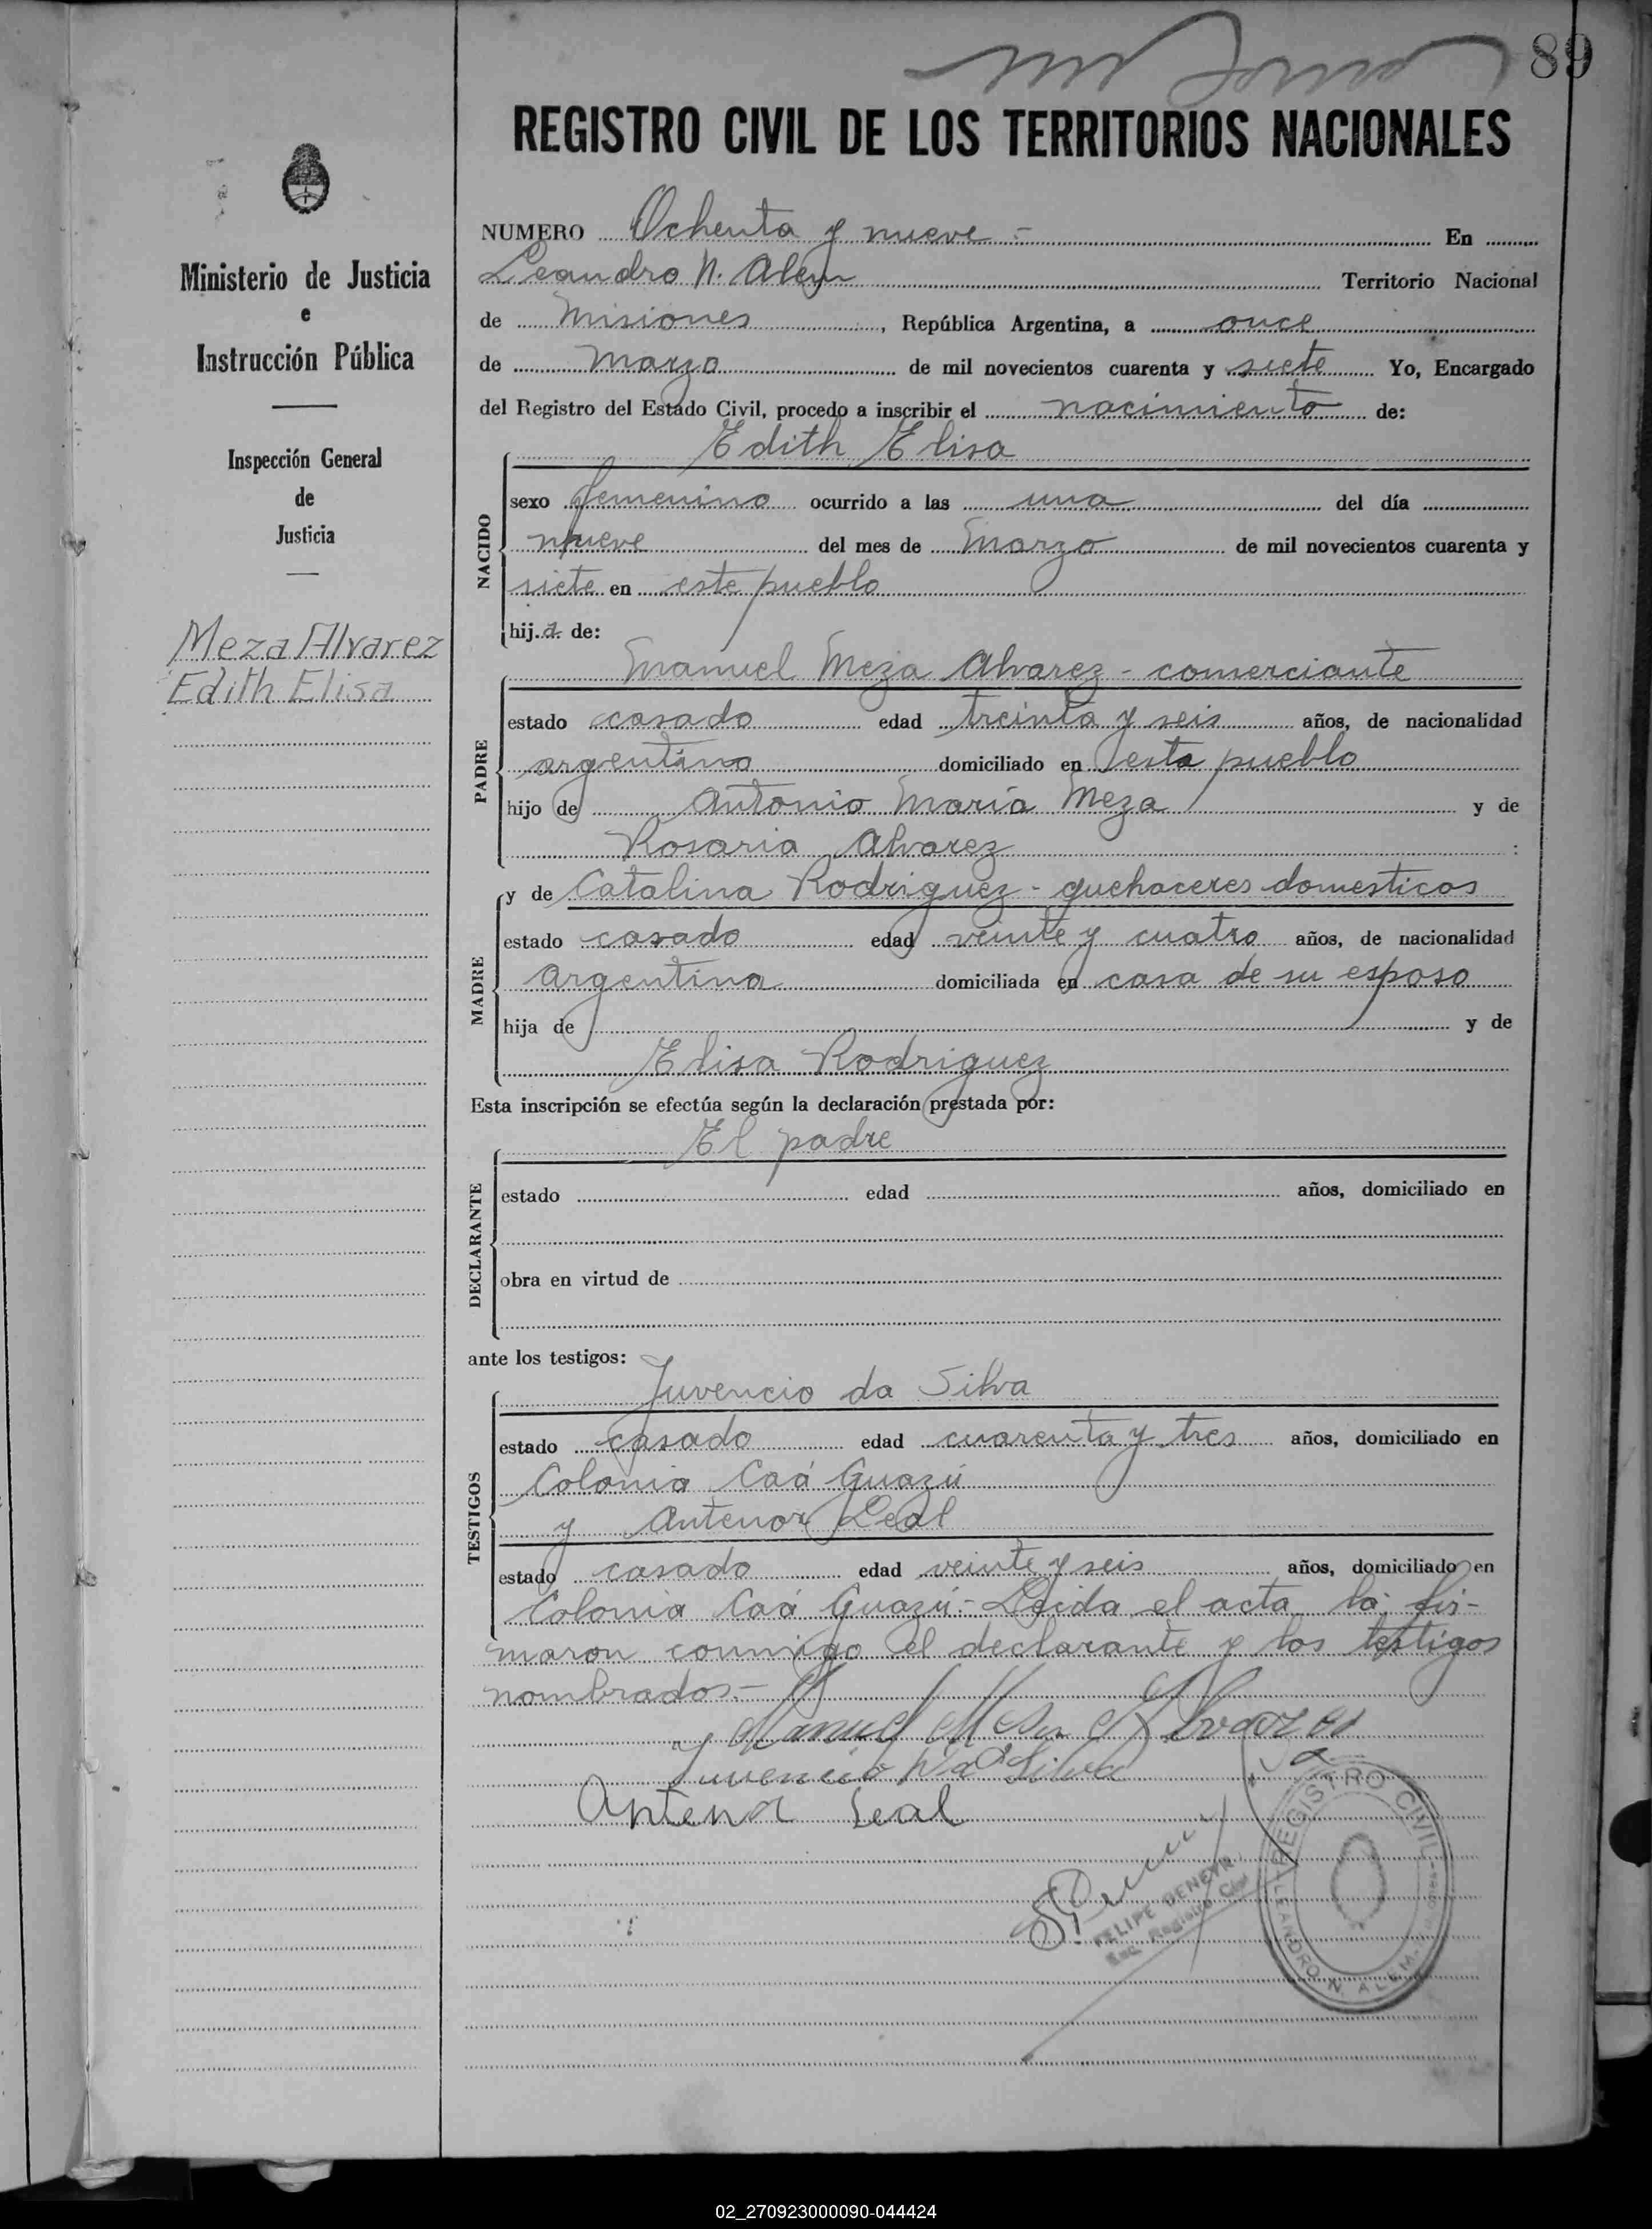 89
REGISTRO CIVIL DE LOS TERRITORIOS NACIONALES
Ministerio de Justicia
e
Instrucción Pública
Inspección General
de
Justicia
Meza Alvarez
Edith Elisa
NUMERO Ochenta y nueve.- En
Leandro N. Alem Territorio Nacional
de Misiones, República Argentina, a once
de Marzo de mil novecientos cuarenta y siete Yo, Encargado
del Registro del Estado Civil, procedo a inscribir el nacimiento de:
Edith Elisa
NACIDO
sexo femenino ocurrido a las una del día
nueve del mes de Marzo de mil novecientos cuarenta y
siete en este pueblo
hij.a de:
Manuel Meza Alvarez - comerciante
PADRE
estado casado edad treinta y seis años, de nacionalidad
argentino domiciliado en este pueblo
hijo de Antonio María Meza y de
Rosaria Alvarez
y de Catalina Rodriguez - quehaceres domesticos
MADRE
estado casado edad veinte y cuatro años, de nacionalidad
Argentina domiciliada en casa de su esposo
hija de y de
Elisa Rodriguez
Esta inscripción se efectúa según la declaración prestada por:
El padre
DECLARANTE
estado edad años, domiciliado en
obra en virtud de
ante los testigos:
Juvencio da Silva
TESTIGOS
estado casado edad cuarenta y tres años, domiciliado en
Colonia Caá Guazú
y Antenor Leal
estado casado edad veinte y seis años, domiciliado en
Colonia Caá Guazú.- Leida el acta la fir-
maron conmigo el declarante y los testigos
nombrados.-
Manuel Meza Alvarez
Juvencio Da Silva
Antenor Leal
FELIPE BENEYR
Enc. Registro Civil
REGISTRO CIVIL
LEANDRO N. ALEM
02_270923000090-044424